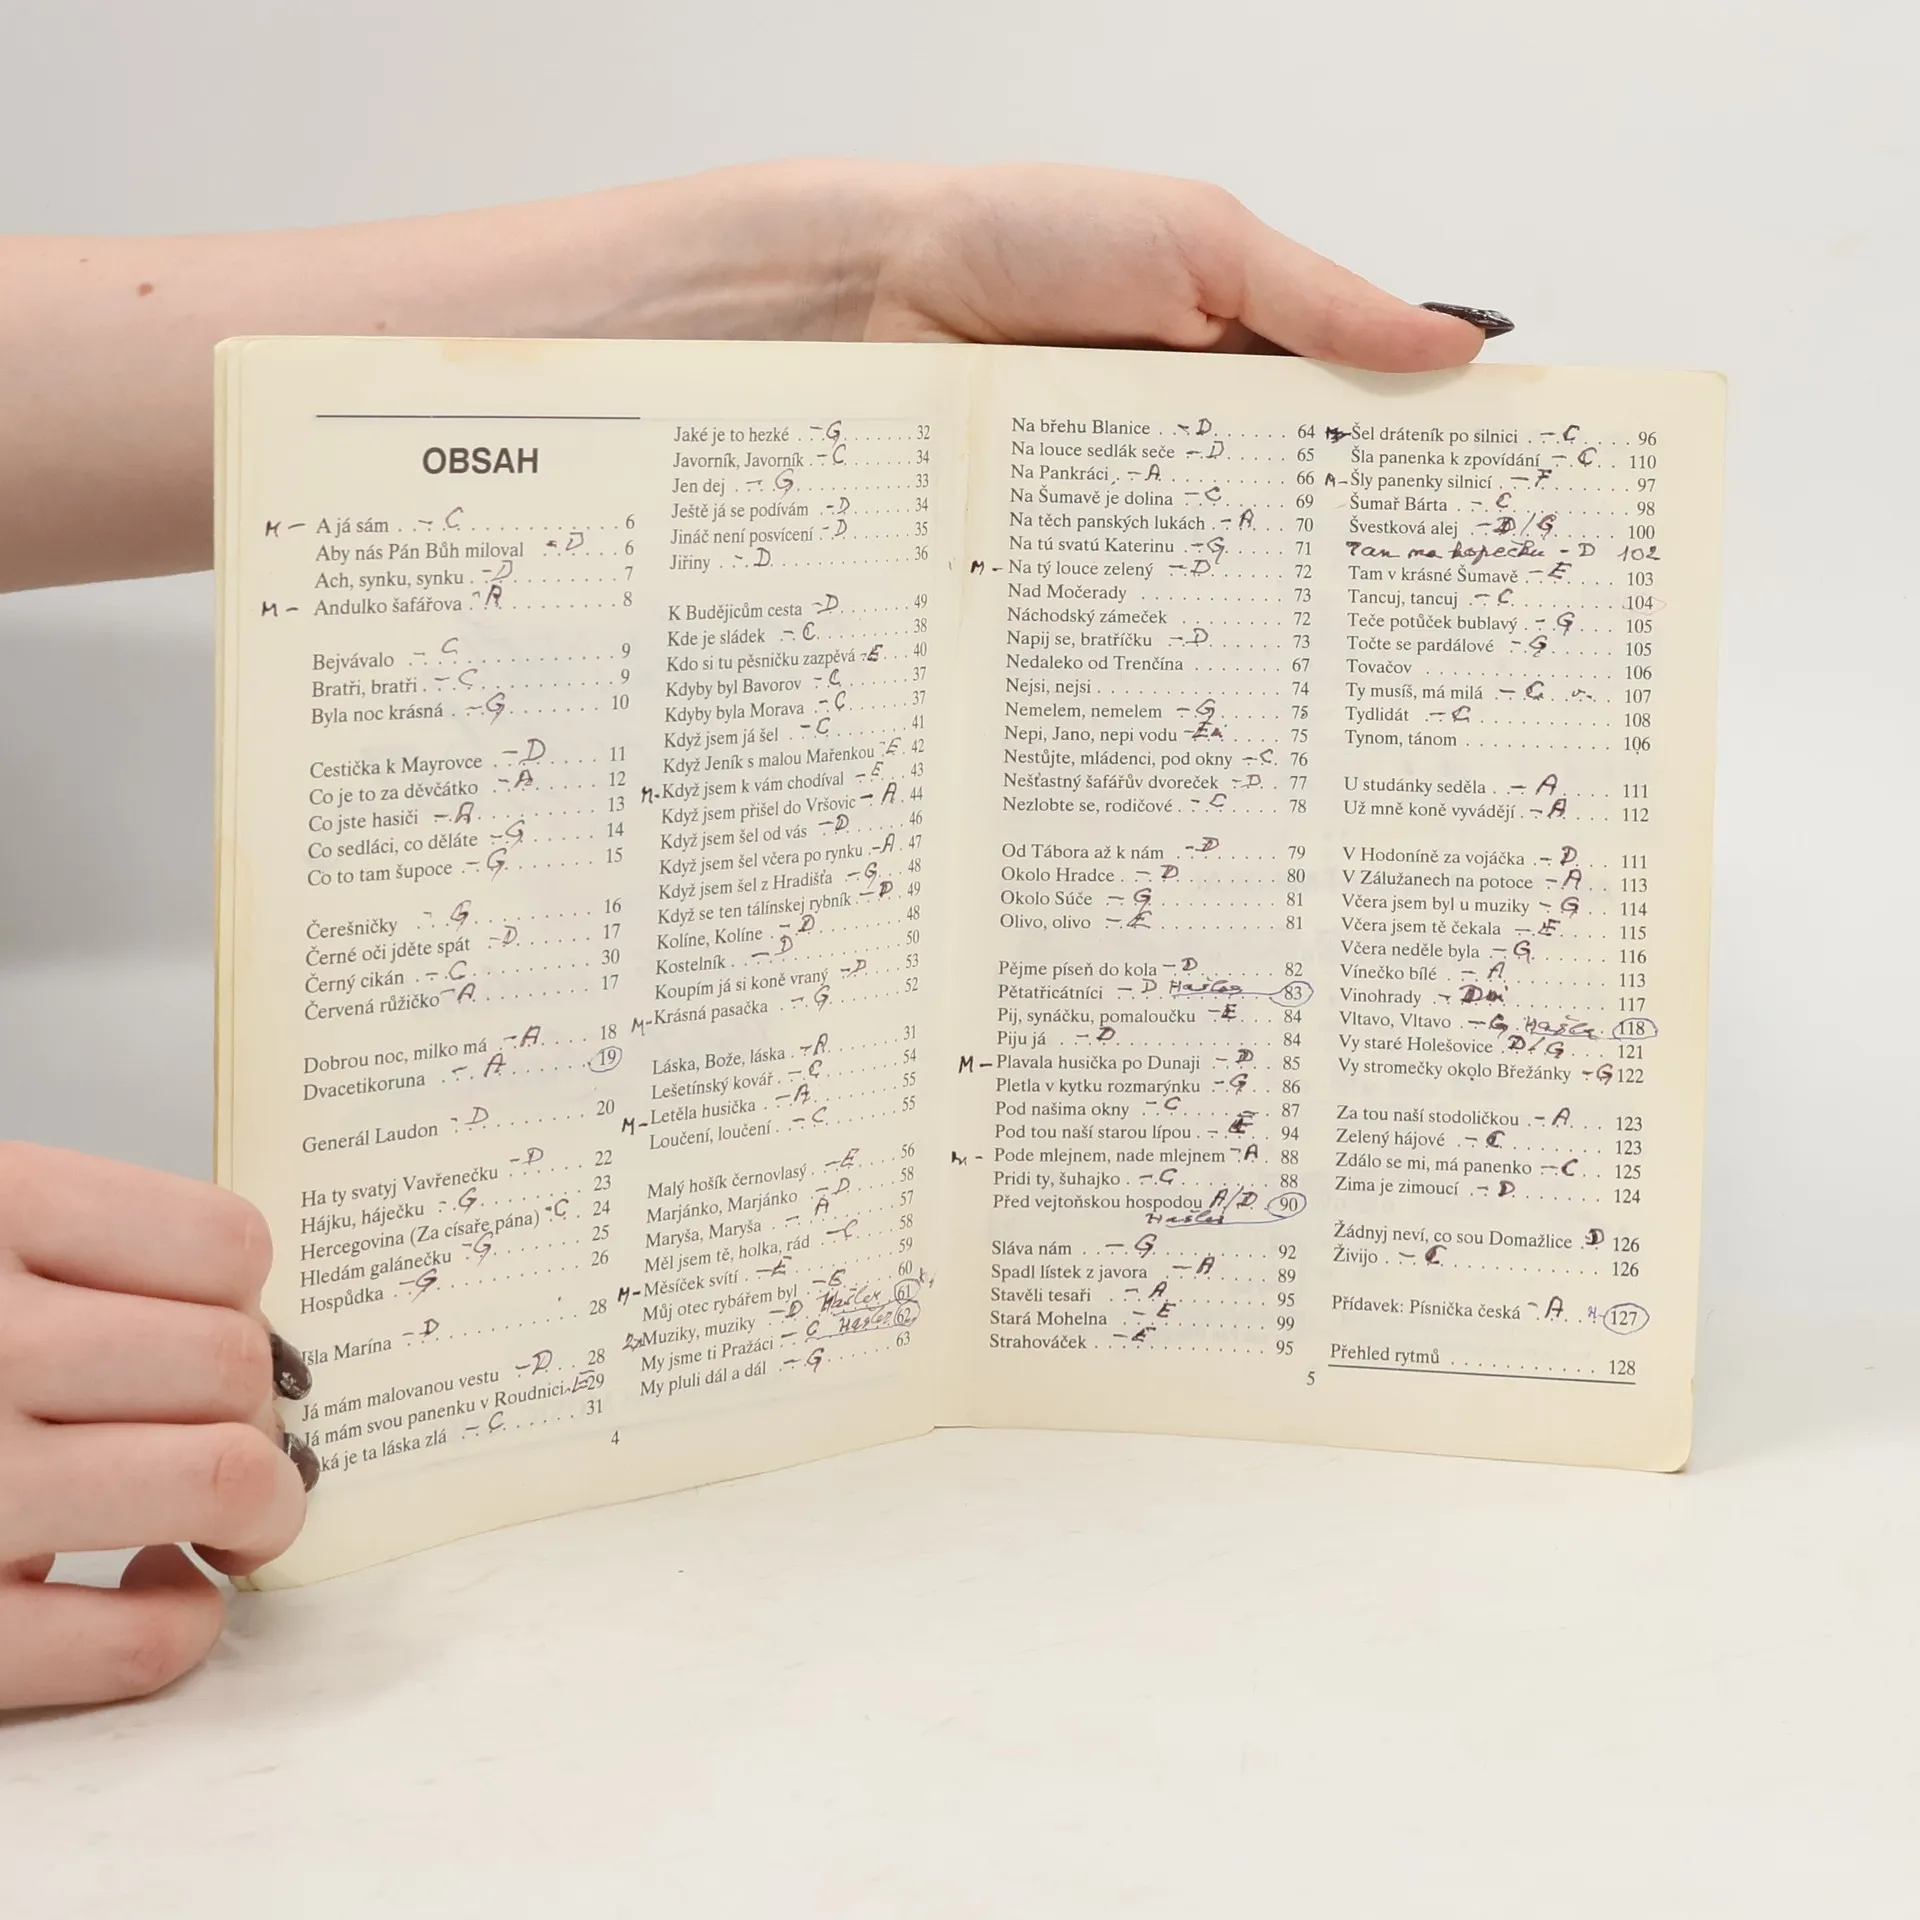 OBSAH
M – A já sám – C 6
Aby nás Pán Bůh miloval – D 6
Ach, synku, synku – D 7
M – Andulko šafářova – A 8
Bejvávalo – C 9
Bratři, bratři – C 9
Byla noc krásná – G 10
Cestička k Mayrovce – D 11
Co je to za děvčátko – A 12
Co jste hasiči – A 13
Co sedláci, co děláte – G 14
Co to tam šupoce – G 15
Čerešničky – G 16
Černé oči jděte spát – D 17
Černý cikán – C 30
Červená růžičko – A 17
Dobrou noc, milko má – A 18
Dvacetikoruna – A 19
Generál Laudon – D 20
Ha ty svatyj Vavřenečku – D 22
Hájku, háječku – G 23
Hercegovina (Za císaře pána) – C 24
Hledám galánečku – G 25
Hospůdka – G 26
Išla Marína – D 28
Já mám malovanou vestu – D 28
Já mám svou panenku v Roudnici – E 29
ká je ta láska zlá – C 31
4
Jaké je to hezké – G 32
Javorník, Javorník – C 34
Jen dej – G 33
Ještě já se podívám – D 34
Jináč není posvícení – D 35
Jiřiny – D 36
K Budějicům cesta – D 49
Kde je sládek – C 38
Kdo si tu pěsničku zazpěvá – E 40
Kdyby byl Bavorov – C 37
Kdyby byla Morava – C 37
Když jsem já šel – C 41
Když Jeník s malou Mařenkou – E 42
M – Když jsem k vám chodíval – E 43
Když jsem přišel do Vršovic – A 44
Když jsem šel od vás – D 46
Když jsem šel včera po rynku – A 47
Když jsem šel z Hradišťa – G 48
Když se ten tálínskej rybník – D 49
Kolíne, Kolíne – D 48
Kostelník – D 50
Koupím já si koně vraný – D 53
M – Krásná pasačka – G 52
Láska, Bože, láska – A 31
Lešetínský kovář – C 54
M – Letěla husička – A 55
Loučení, loučení – C 55
Malý hošík černovlasý – E 56
Marjánko, Marjánko – D 58
Maryša, Maryša – A 57
Měl jsem tě, holka, rád – C 58
M – Měsíček svítí – E 59
Můj otec rybářem byl – G 60
2x Muziky, muziky – D Hašler 61
My jsme ti Pražáci – C Hašler 62
My pluli dál a dál – G 63
Na břehu Blanice – D 64
Na louce sedlák seče – D 65
Na Pankráci – A 66
Na Šumavě je dolina – C 69
Na těch panských lukách – A 70
Na tú svatú Katerinu – G 71
M – Na tý louce zelený – D 72
Nad Močerady 73
Náchodský zámeček 72
Napij se, bratříčku – D 73
Nedaleko od Trenčína 67
Nejsi, nejsi 74
Nemelem, nemelem – G 75
Nepi, Jano, nepi vodu 75
Nestůjte, mládenci, pod okny – C 76
Nešťastný šafářův dvoreček – D 77
Nezlobte se, rodičové – C 78
Od Tábora až k nám – D 79
Okolo Hradce – D 80
Okolo Súče – G 81
Olivo, olivo – E 81
Pějme píseň do kola – D 82
Pětatřicátníci – D Hašler 83
Pij, synáčku, pomaloučku – E 84
Piju já – D 84
M – Plavala husička po Dunaji – D 85
Pletla v kytku rozmarýnku – G 86
Pod našima okny – C 87
Pod tou naší starou lípou – E 94
M – Pode mlejnem, nade mlejnem – A 88
Pridi ty, šuhajko – G 88
Před vejtoňskou hospodou A/D 90
Hašler
Sláva nám – G 92
Spadl lístek z javora – A 89
Stavěli tesaři – A 95
Stará Mohelna – E 99
Strahováček – E 95
5
Šel dráteník po silnici – C 96
Šla panenka k zpovídání – C 110
M – Šly panenky silnicí – F 97
Šumař Bárta – C 98
Švestková alej – D/G 100
Tam na kopečku – D 102
Tam v krásné Šumavě – E 103
Tancuj, tancuj – C 104
Teče potůček bublavý – G 105
Točte se pardálové – G 105
Tovačov 106
Ty musíš, má milá – C 107
Tydlidát – C 108
Tynom, tánom 106
U studánky seděla – A 111
Už mně koně vyvádějí – A 112
V Hodoníně za vojáčka – D 111
V Zálužanech na potoce – A 113
Včera jsem byl u muziky – G 114
Včera jsem tě čekala – E 115
Včera neděle byla – G 116
Vínečko bílé – A 113
Vinohrady – D 117
Vltavo, Vltavo – G Hašler 118
Vy staré Holešovice D/G 121
Vy stromečky okolo Břežánky – G 122
Za tou naší stodoličkou – A 123
Zelený hájové – C 123
Zdálo se mi, má panenko – C 125
Zima je zimoucí – D 124
Žádnyj neví, co sou Domažlice D 126
Živijo – C 126
Přídavek: Písnička česká – A H – 127
Přehled rytmů 128